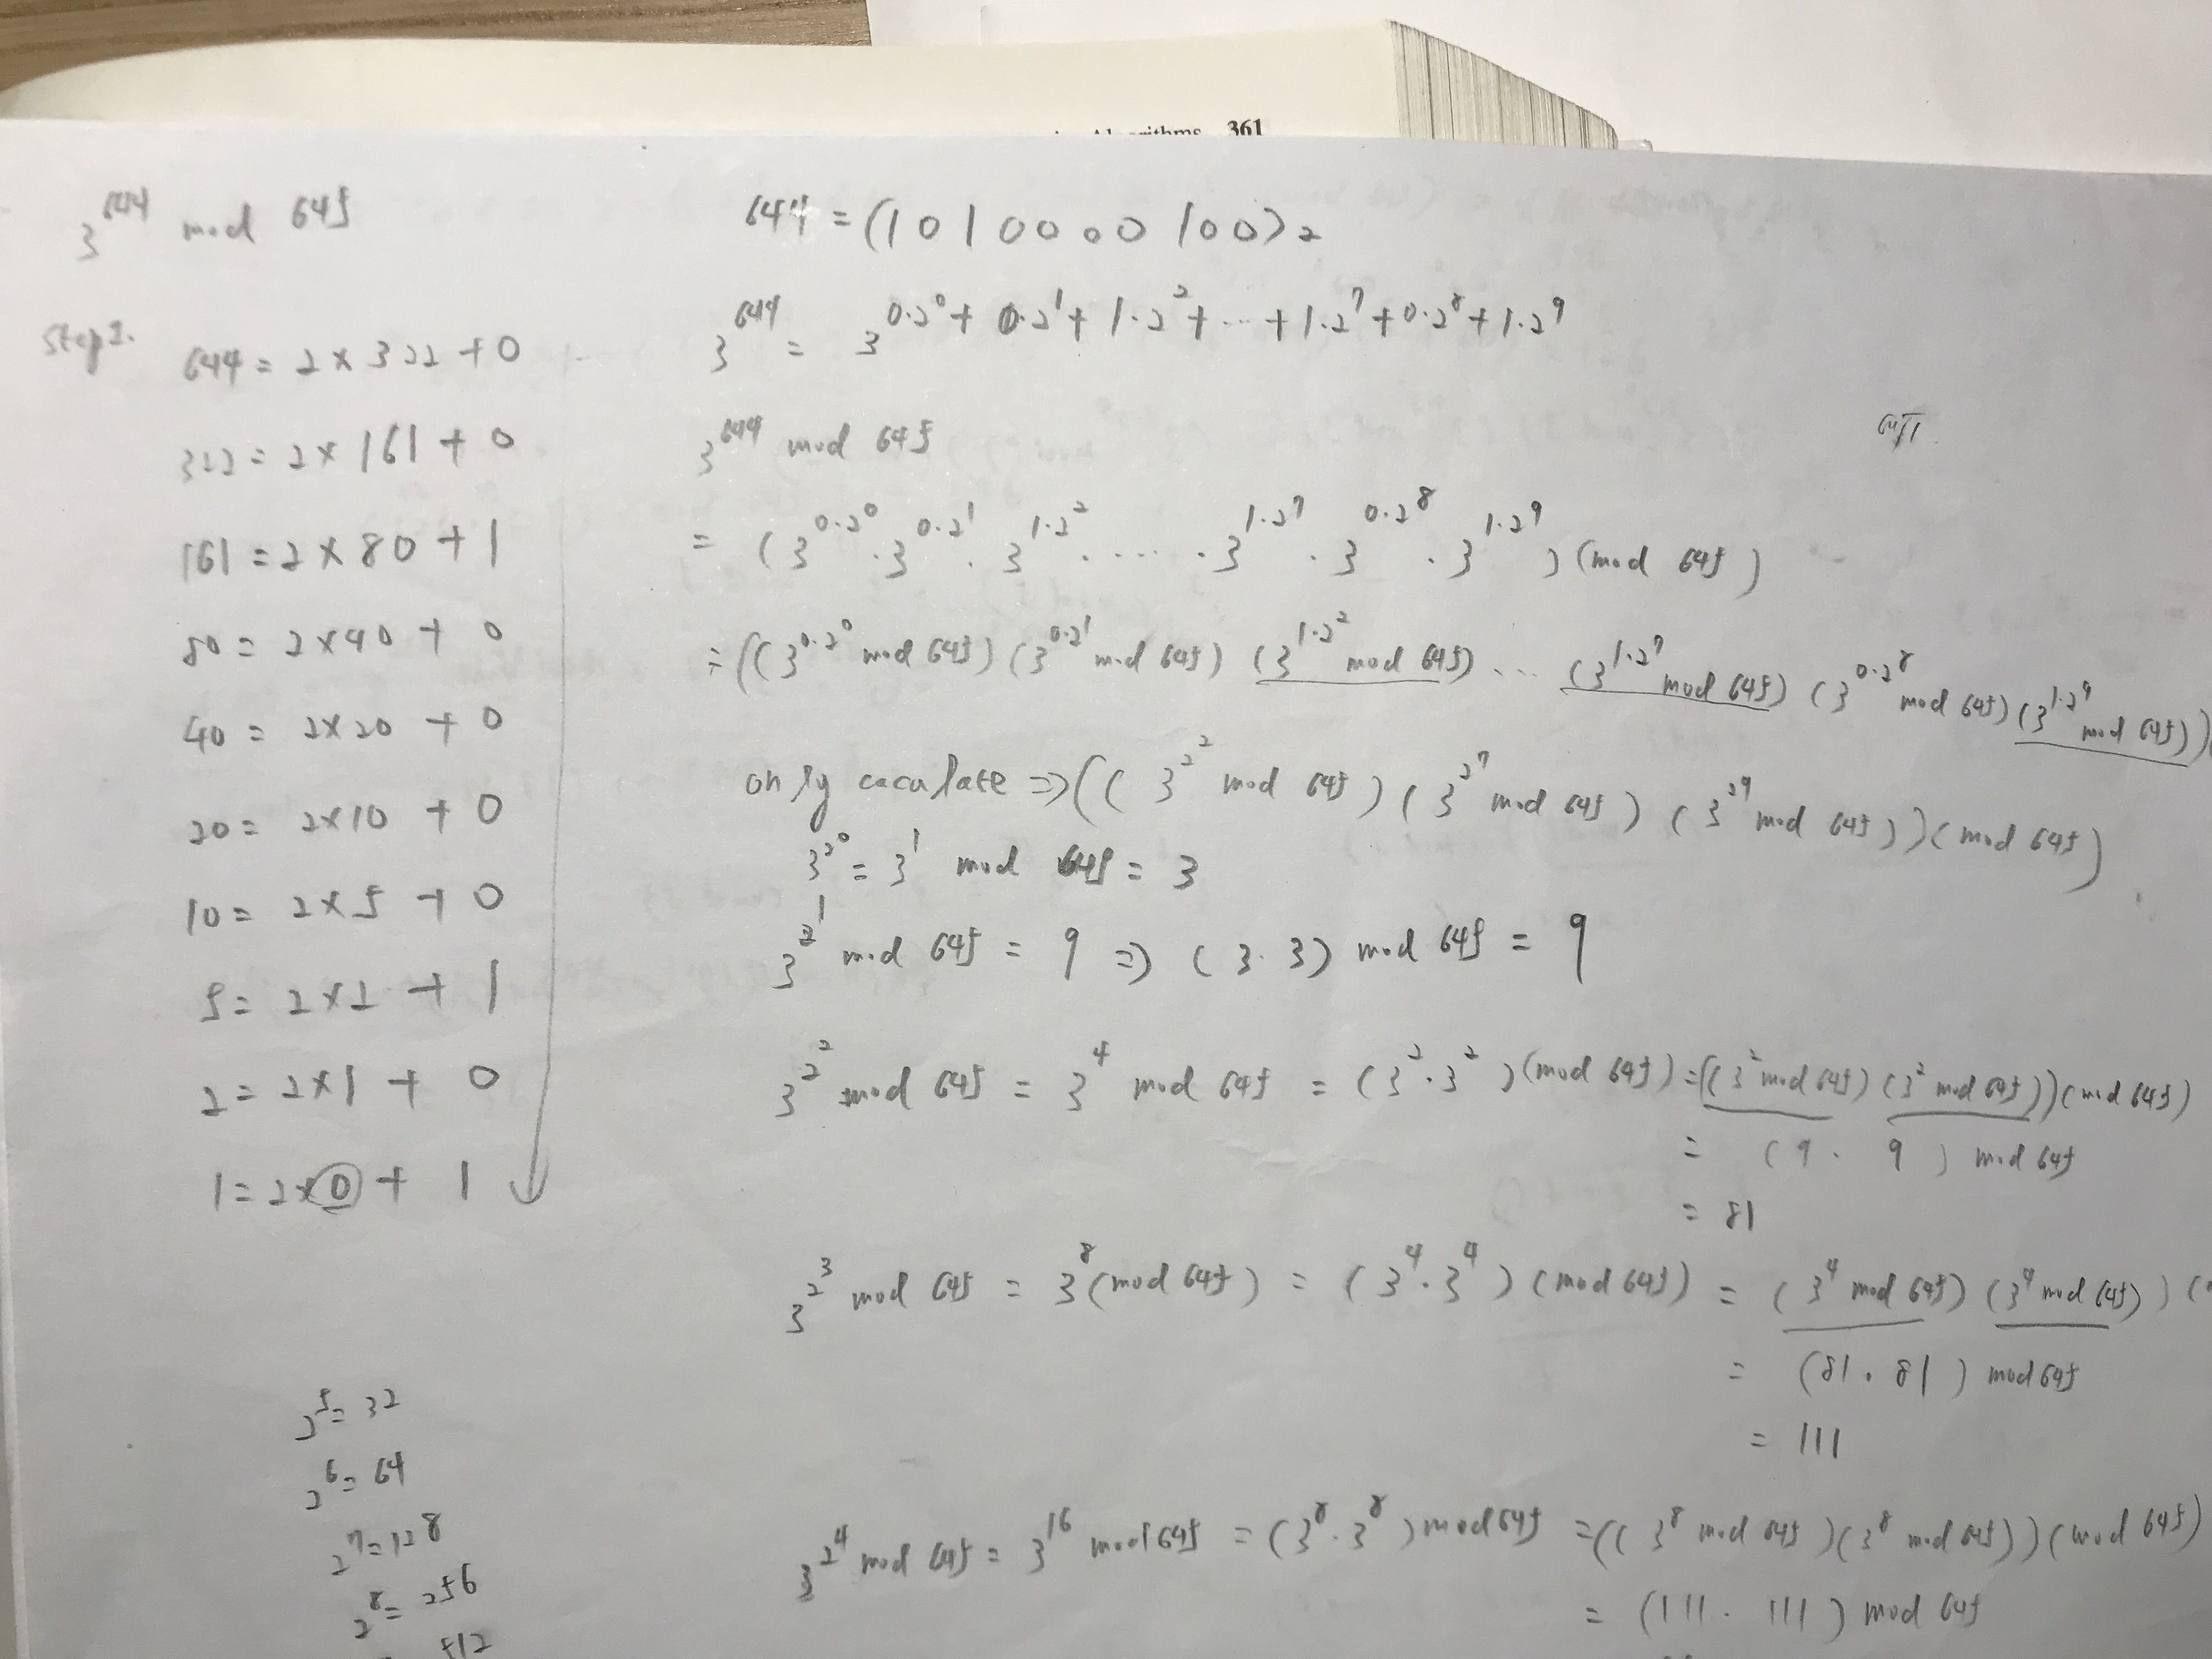 3^644 mod 645
Step 1.
644 = 2 × 322 + 0
322 = 2 × 161 + 0
161 = 2 × 80 + 1
80 = 2 × 40 + 0
40 = 2 × 20 + 0
20 = 2 × 10 + 0
10 = 2 × 5 + 0
5 = 2 × 2 + 1
2 = 2 × 1 + 0
1 = 2 × 0 + 1
2^5 = 32
2^6 = 64
2^7 = 128
2^8 = 256
512
644 = (1010000100)2
3^644 = 3^(0·2^0 + 0·2^1 + 1·2^2 + ... + 1·2^7 + 0·2^8 + 1·2^9)
3^644 mod 645
= (3^(0·2^0) · 3^(0·2^1) · 3^(1·2^2) · ... · 3^(1·2^7) · 3^(0·2^8) · 3^(1·2^9)) (mod 645)
= ((3^(0·2^0) mod 645) (3^(0·2^1) mod 645) (3^(1·2^2) mod 645) ... (3^(1·2^7) mod 645) (3^(0·2^8) mod 645) (3^(1·2^9) mod 645))
only caculate => ((3^2^2 mod 645) (3^2^7 mod 645) (3^2^9 mod 645)) (mod 645)
3^2^0 = 3^1 mod 645 = 3
3^2^1 mod 645 = 9 => (3 · 3) mod 645 = 9
3^2^2 mod 645 = 3^4 mod 645 = (3^2 · 3^2) (mod 645) = ((3^2 mod 645) (3^2 mod 645)) (mod 645)
= (9 · 9) mod 645
= 81
3^2^3 mod 645 = 3^8 (mod 645) = (3^4 · 3^4) (mod 645) = (3^4 mod 645) (3^4 mod 645)) (
= (81 · 81) mod 645
= 111
3^2^4 mod 645 = 3^16 mod 645 = (3^8 · 3^8) mod 645 = ((3^8 mod 645) (3^8 mod 645)) (mod 645)
= (111 · 111) mod 645
361